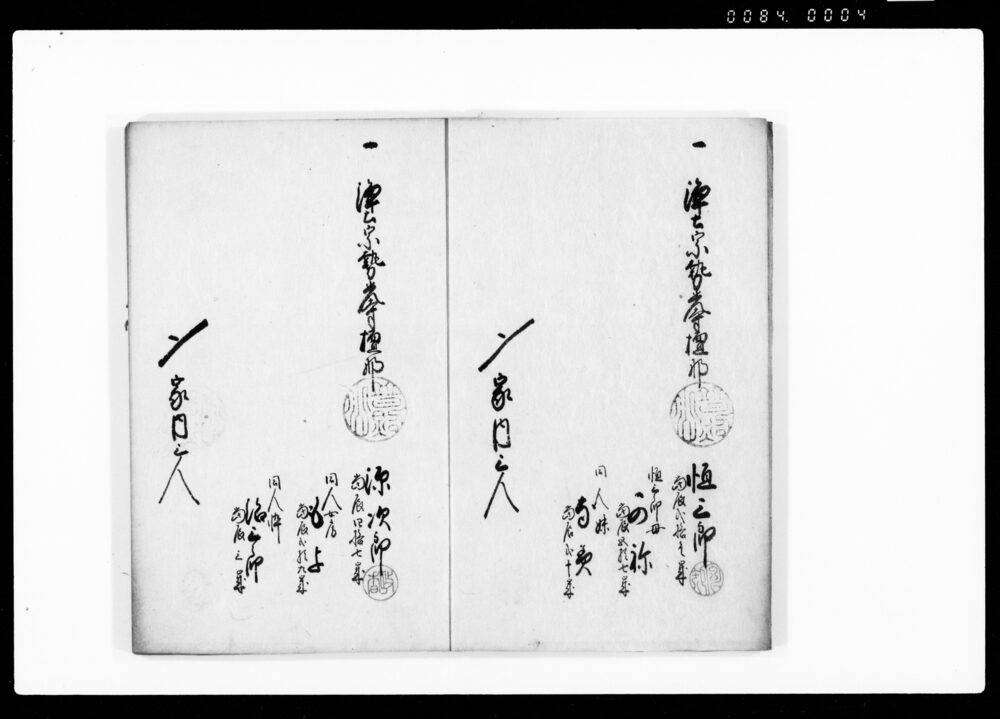 0084. 0004
一 浄土宗 檀那
恒三郎
当辰弐拾壱歳
恒三郎母
当辰五拾七歳
同人妹
当辰弐十歳
〆 家内三人
一 浄土宗 檀那
源次郎
当辰四拾七歳
同人女房
当辰弐拾九歳
同人忰
治三郎
当辰三歳
〆 家内三人